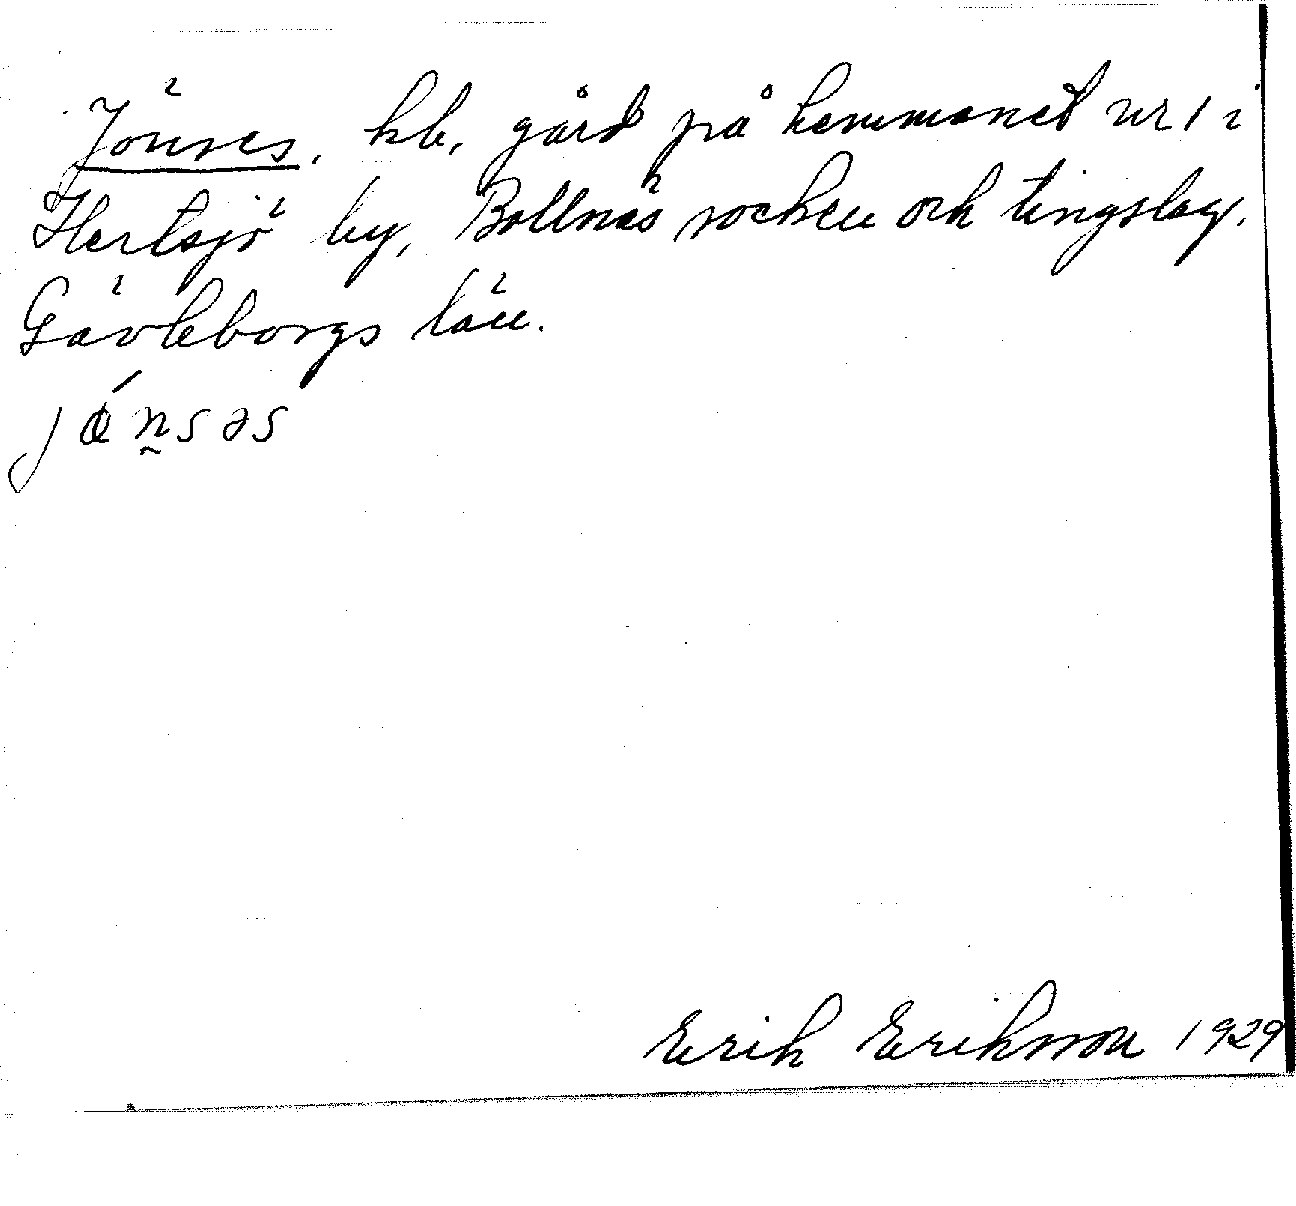 Jönses, hb, gård på hemmanet nr 1 i
Hertsjö by, Bollnäs socken och tingslag,
Gävleborgs län.
Erik Eriksson 1929